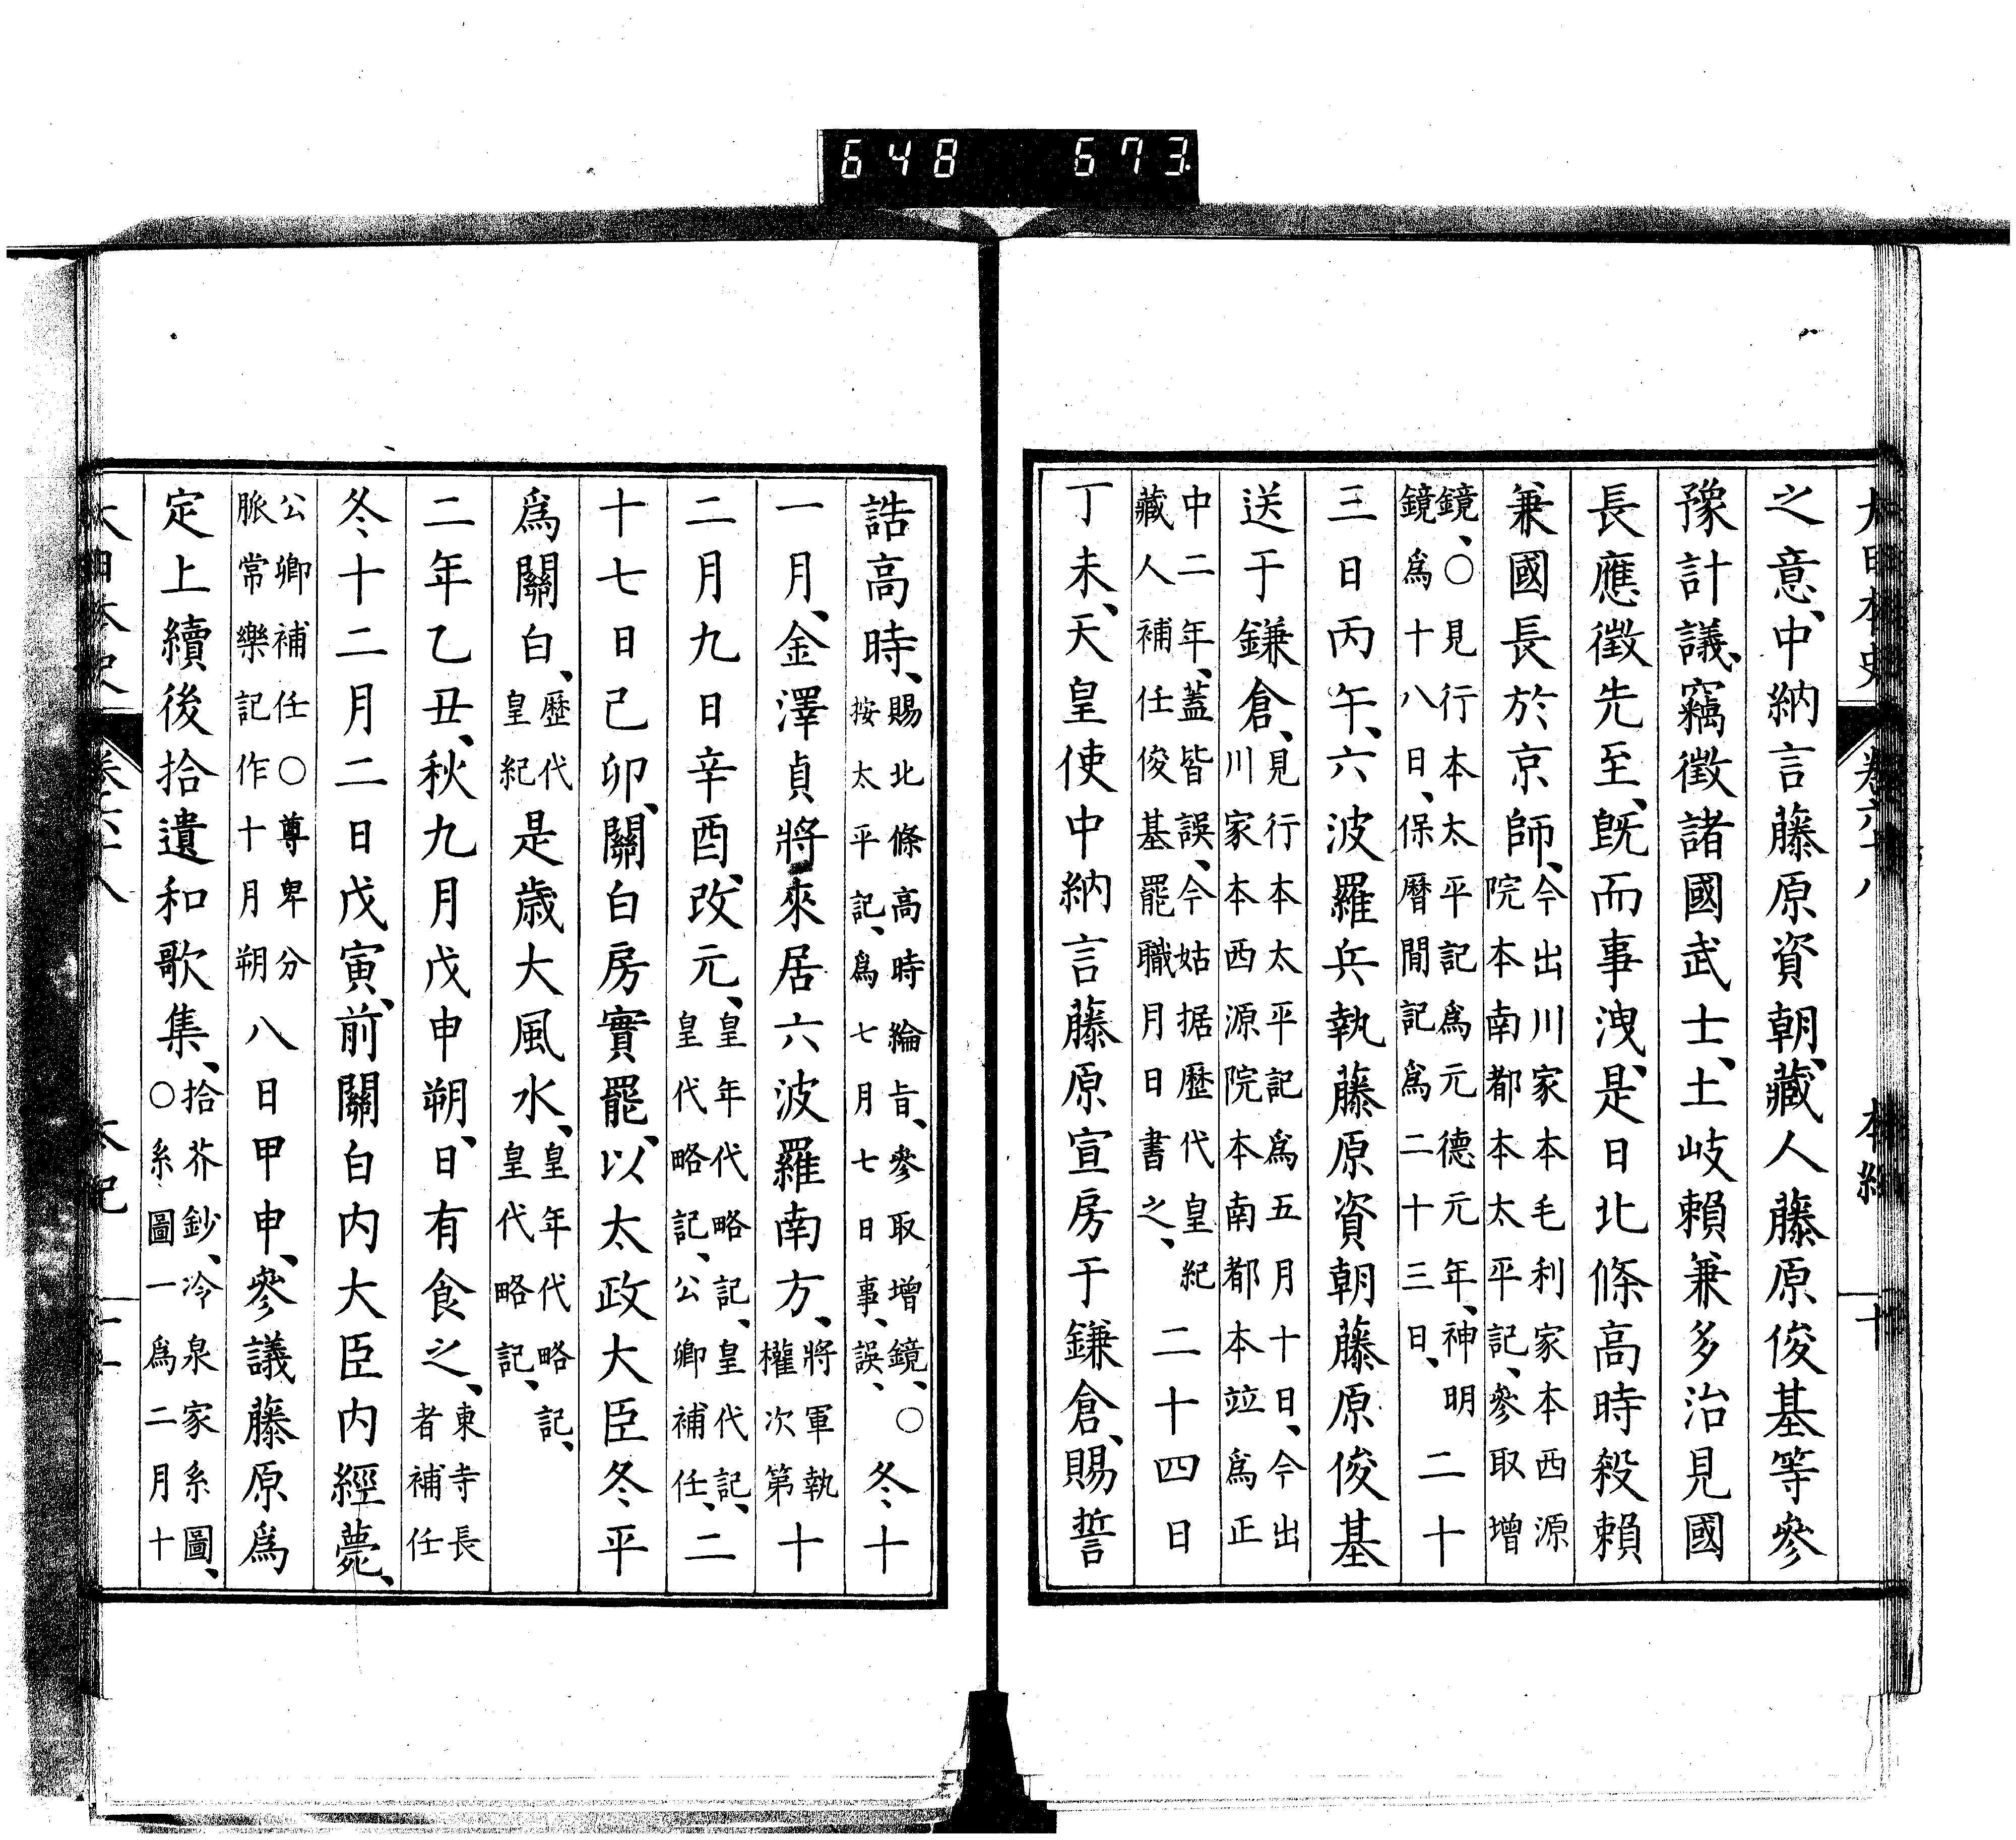 648 673
之意、中納言藤原資朝、藏人藤原俊基等參
豫計議、竊徵諸國武士、土岐賴兼多治見國
長應徵先至、既而事洩、是日北條高時殺賴
兼國長於京師、今出川家本毛利家本西源院本南都本太平記、參取增
鏡、○見行本太平記爲元德元年、神明鏡爲十八日、保曆閒記爲二十三日、二十
三日丙午、六波羅兵執藤原資朝藤原俊基
送于鎌倉、見行本太平記爲五月十日、今出川家本西源院本南都本竝爲正
中二年、蓋皆誤、今姑据歷代皇紀藏人補任俊基罷職月日書之、二十四日
丁未、天皇使中納言藤原宣房于鎌倉、賜誓
誥高時、賜北條高時綸旨、參取增鏡、○按太平記、爲七月七日事、誤、冬十
一月、金澤貞將來居六波羅南方、將軍執權次第十
二月九日辛酉、改元、皇年代略記、皇代記、皇代略記、公卿補任、二
十七日己卯、關白房實罷、以太政大臣冬平
爲關白、歷代皇紀是歲大風水、皇年代略記、皇代略記、
二年乙丑、秋九月戊申朔、日有食之、東寺長者補任
冬十二月二日戊寅、前關白内大臣内經薨、
公卿補任○尊卑分脈常樂記作十月朔八日甲申、參議藤原爲
定上續後拾遺和歌集、拾芥鈔、冷泉家系圖、○系圖一爲二月十